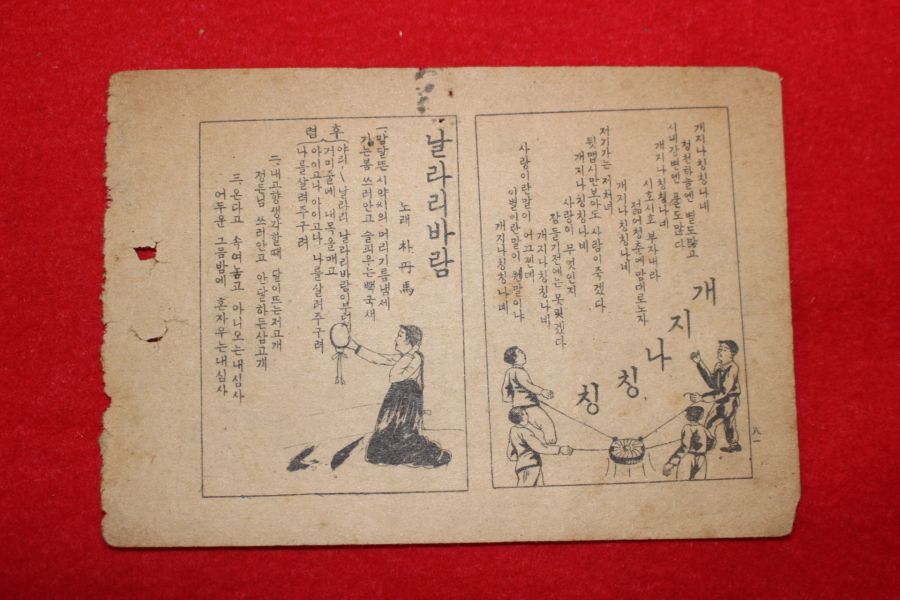 개지나칭칭
개지나칭칭나네
청천하늘엔 별도많고
시내강변엔 돌도많다
개지나칭칭나네
시호시호 부자내라
젊어청춘에맘대로노자
개지나칭칭나네
저기가는 저처녀
뒷맵시만보아도 사랑이죽겠다
개지나칭칭나네
사랑이 무엇인지
잠들기전에는 못잊겠다
개지나칭칭나네
사랑이란말이 어그찐데
이별이란말이 웬말이냐
개지나칭칭나네
八一
날라리바람
노래 朴丹馬
一、맘달뜬시약씨의 머리기름냄새
가는봄 쓰러안고 슬피우는 뻑국새
후렴
야리 날라리 날라리바람이불러
거미줄에 내목을매고
아이고나 아이고나 나를살려주구려
나를살려주구려
二、내고향생각할때 달이뜨는저고개
정든님 쓰러안고 안달하든삼고개
三、온다고 속여놓고 아니오는내심사
어두운 그믐밤에 혼자우는내심사